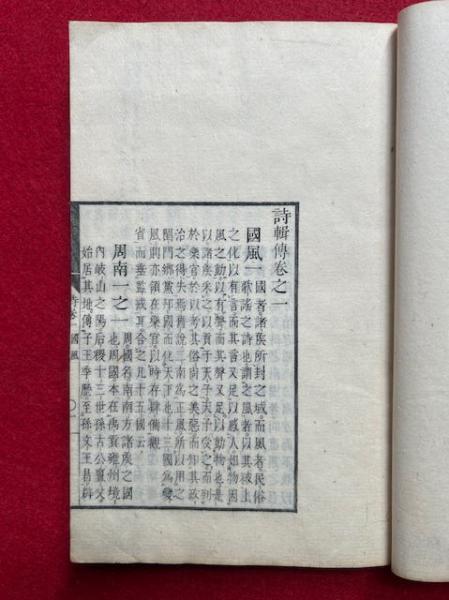 詩輯傳卷之一
國風一 國者諸侯所封之域而風者民俗
歌謠之詩也謂之風者以其被上
之化以有言而其言又足以感人如物因
風之動以有聲而其聲又足以動物也是
以諸侯采之以貢于天子天子受之而列
於樂官於以考其俗尚之美惡而知其政
治之得失焉舊說二南為正風所以用之
閨門鄉黨邦國而化天下也十三國為變
風則亦領在樂官以時存肄備觀
省而垂監戒耳合之凡十五國云
周南一之一 周國名南南方諸侯之國
也周國本在禹貢雍州境
內岐山之陽后稷十三世孫古公亶父
始居其地傳子王季歷至孫文王昌辟
詩卷一 國風